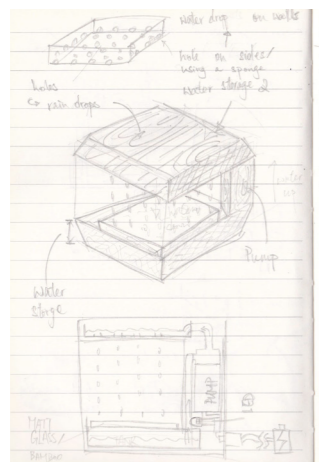 water drop on walls
hole on sides/
using a sponge
water storage 2
holes
rain drops
water
Pump
Water
storge
PUMP
LED
MATT
GLASS/